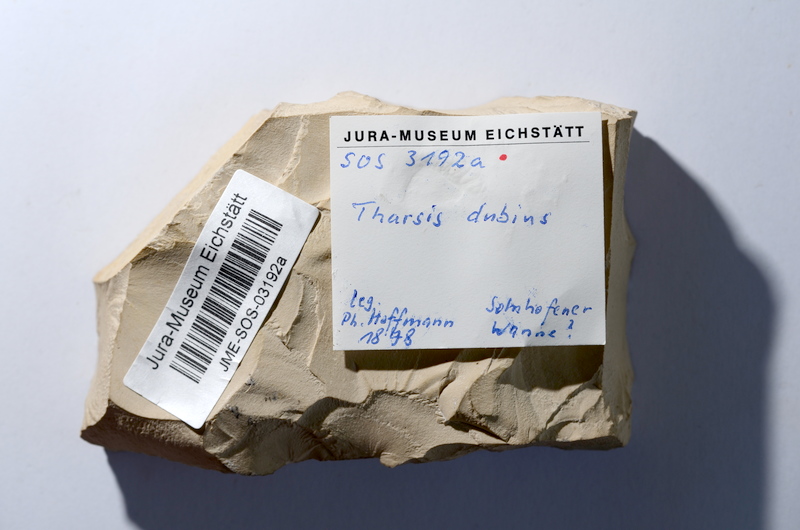 JURA-MUSEUM EICHSTÄTT
SOS 3192a
Tharsis dubius
leg.
Ph. Hoffmann
1898
Solnhofener
Wänne?
Jura-Museum Eichstätt
JME-SOS-03192a